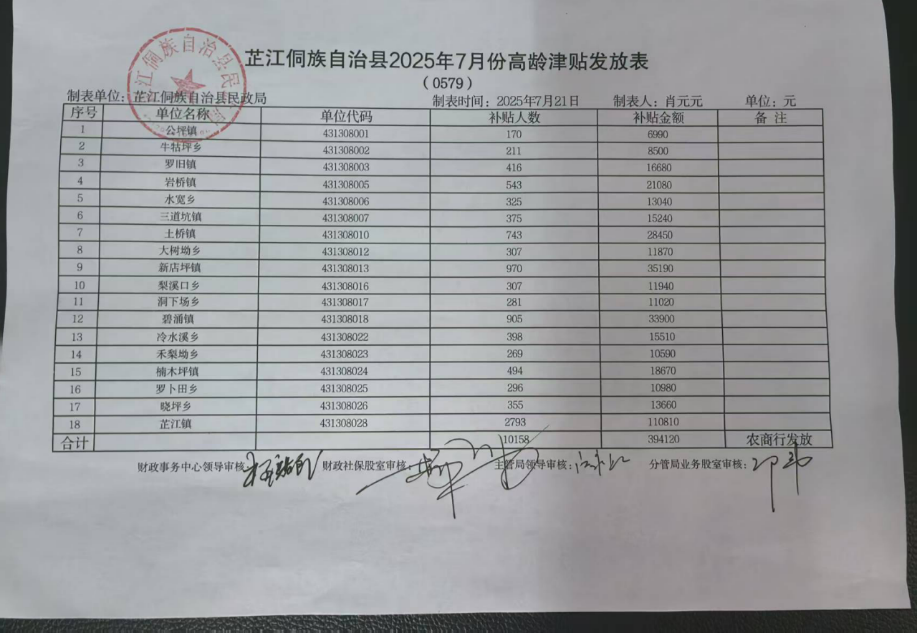 芷江侗族自治县2025年7月份高龄津贴发放表
（0579）
制表单位：芷江侗族自治县民政局 制表时间：2025年7月21日 制表人：肖元元 单位：元
序号 单位名称 单位代码 补贴人数 补贴金额 备 注
1 公坪镇 431308001 170 6990
2 牛牯坪乡 431308002 211 8500
3 罗旧镇 431308003 416 16680
4 岩桥镇 431308005 543 21080
5 水宽乡 431308006 325 13040
6 三道坑镇 431308007 375 15240
7 土桥镇 431308010 743 28450
8 大树坳乡 431308012 307 11870
9 新店坪镇 431308013 970 35190
10 梨溪口乡 431308016 307 11940
11 洞下场乡 431308017 281 11020
12 碧涌镇 431308018 905 33900
13 冷水溪乡 431308022 398 15510
14 禾梨坳乡 431308023 269 10590
15 楠木坪镇 431308024 494 18670
16 罗卜田乡 431308025 296 10980
17 晓坪乡 431308026 355 13660
18 芷江镇 431308028 2793 110810
合计 10158 394120 农商行发放
财政事务中心领导审核： 财政社保股室审核： 主管局领导审核： 分管局业务股室审核：